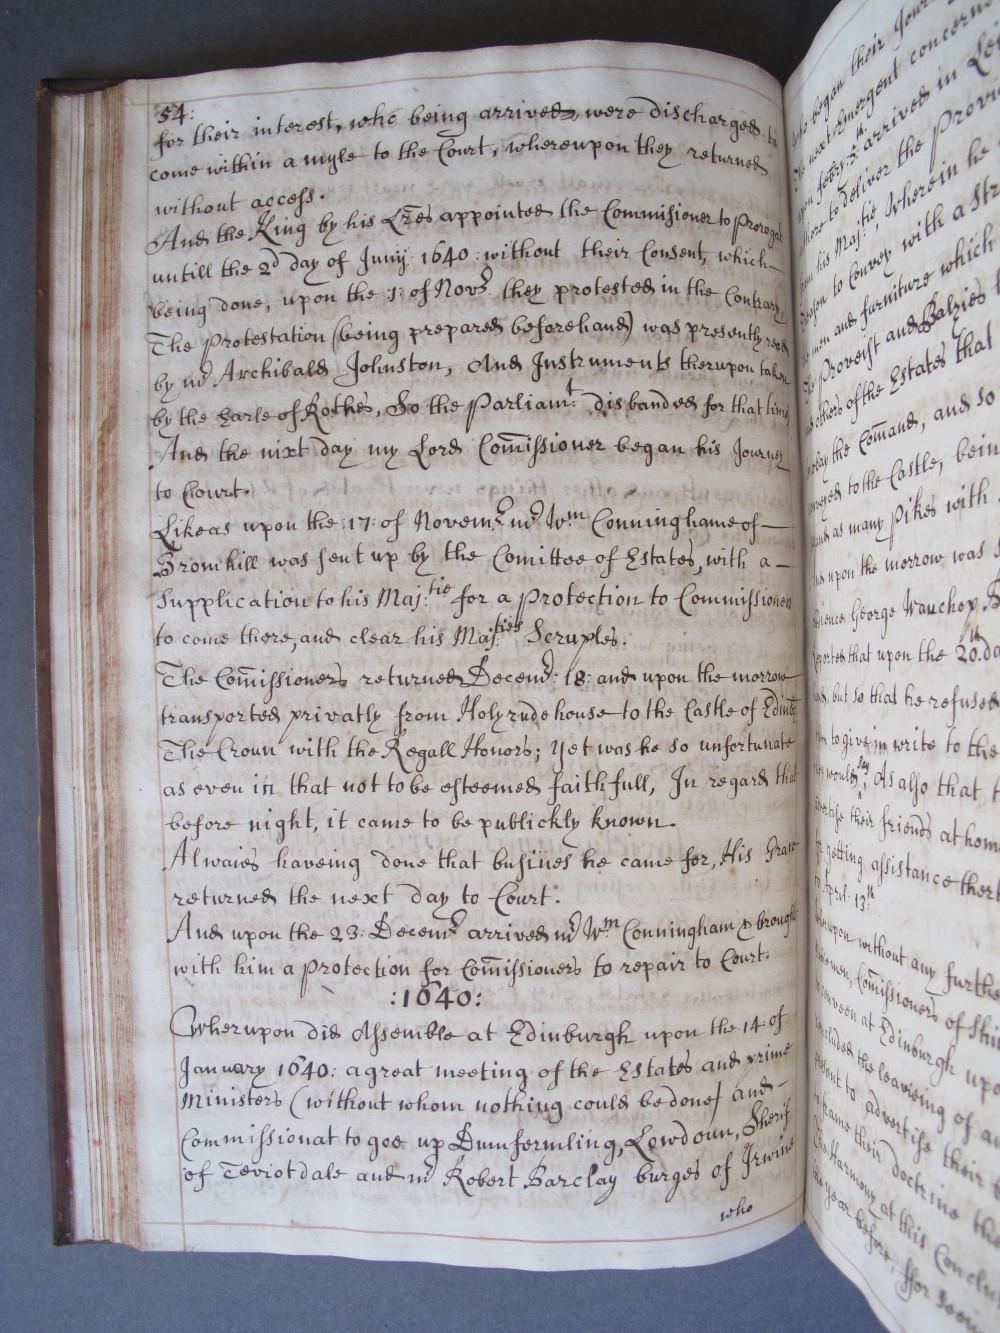 54:
for their interest, who being arrived, were discharged to
come within a myle to the Court, wherupon they returned
without access.
And the King by his Lr̅es appointed the Commissioner to Prorogat
untill the 2d day of Junij: 1640: without their Consent, which—
being done, upon the :1: of Novr they protested in the Contrary,
The Protestation (being prepared beforehand) was presently read
by mr Archibald Johnston, And Instruments therupon taken
by the Earle of Rothes, So the Parliamt. disbanded for that time
And the nixt day my Lord Com̅issioner began his Journey
to Court.
Likeas upon the :17: of Novemr mr Wm Conninghame of—
Bromhill was sent up by the Comittee of Estates, with a—
Supplication to his Maj:tie for a Protection to Commissioners
to come there, and clear his Maj:ties Scruples.
The Com̅issioners returned Decemr: 18: and upon the morrow
transported privatly from Holyrudehouse to the Castle of Edinbr
The Croun with the Regall Honors; yet was he so unfortunate
as even in that not to be esteemed faithfull, In regard that
before night, it came to be publickly known.
Alwaies haveing done that busines he came for, His Grace
returned the next day to Court.
And upon the 23: Decemr arrived mr Wm Conningham & brought
with him a Protection for Com̅issioners to repair to Court.
:1640:
Wherupon did Assemble at Edinburgh upon the 14: of
January 1640: a great meeting of the Estates and prime
Ministers (without whom nothing could be done) and—
Commissionat to goe up Dumfermling, Lowdoun, Sherif
of Teviotdale and mr Robert Barclay burges of Irwine
who
began their Jour
The next Emergent concerne
upon febry: 5: arrived in Lei
there to deliver the Provi
from his Maj:tie, Wherein he
to Convoy with a Str
men and furniture which
The Proveist and Balzies
and others of the Estates that
obey the Com̅and, and so
conveyed to the Castle, bein
and as many Pikes with
And upon the morrow was
George Wauchop
reported that upon the 20th da
but so that he refused
to give in write to the
would say, As also that
advertise their friends at hom
for getting assistance ther
April: 13th
Wherupon without any furthe
Noblemen, Com̅issioners of Shir
conveen at Edinburgh upo
concluded the leavieing of a
present to advertise their
frame their doctrine the
The Harmony at this Conclu
the year before, ffor